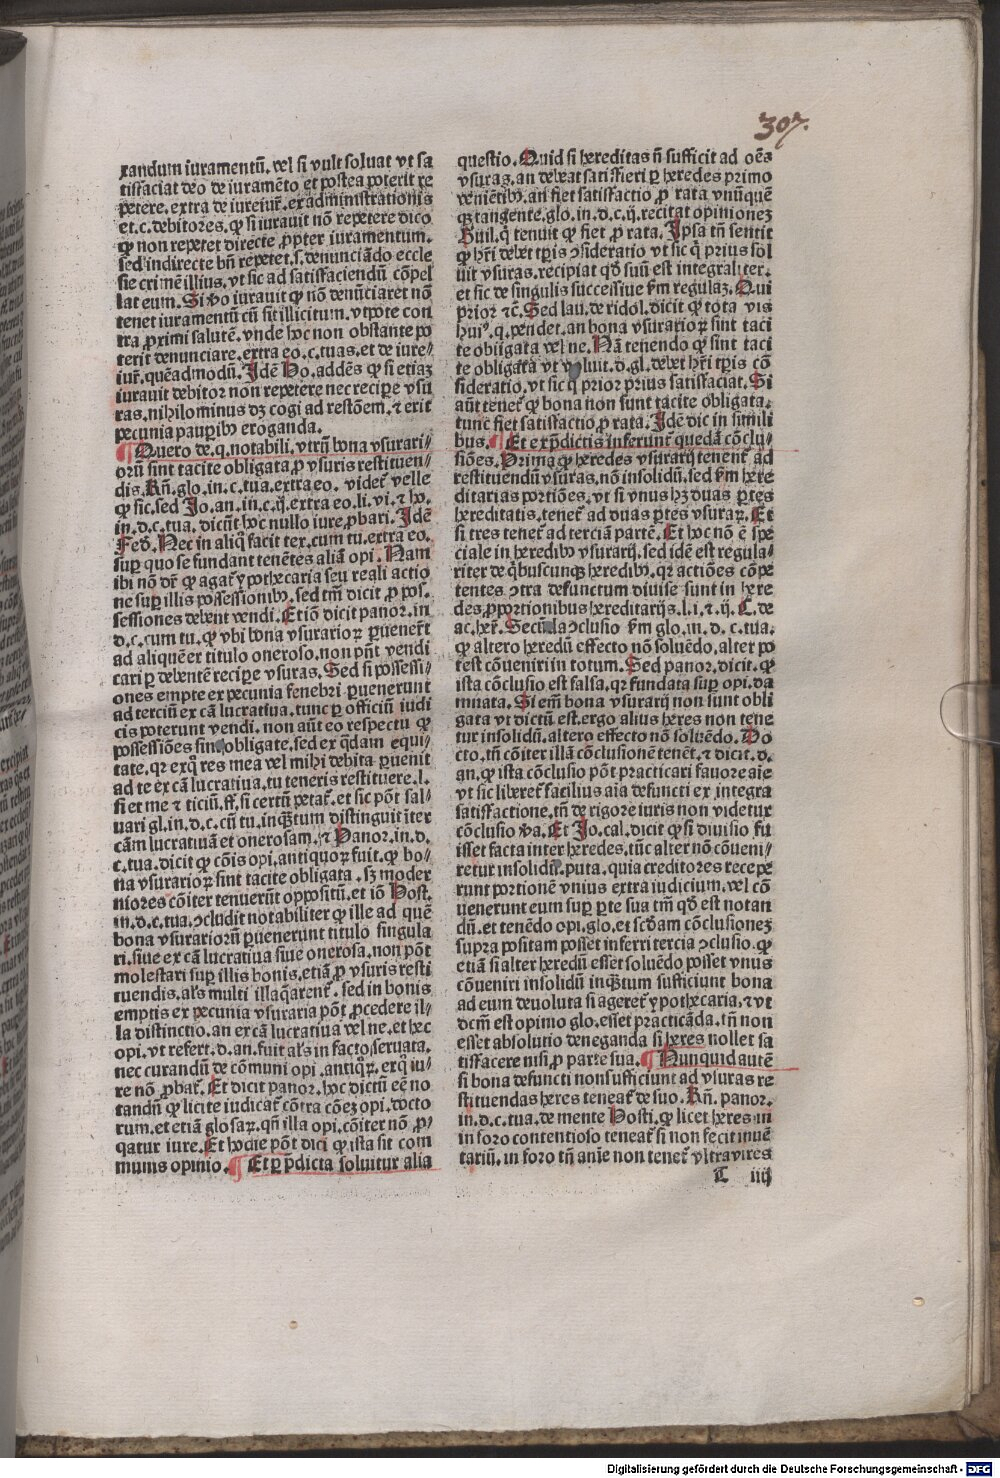 307.
randum iuramentū. vel si vult soluat vt sa
tisfaciat deo de iuramēto et postea poterit re
petere. extra de iureiur̄. ex administrationis
et. c. debitores. ꝙ si iurauit nō repetere dico
ꝙ non repetet directe ꝓpter iuramentum.
sed indirecte bn̄ repetet. s. denunciādo eccle
sie crimē illius. vt sic ad satisfaciendū cōpel
lat eum. Si ꝟo iurauit ꝙ nō denūciaret nō
tenet iuramentū cū sit illicitum. vtpote con
tra ꝓximi salutē. vnde hoc non obstante po
terit denunciare. extra eo. c. tuas. et de iure⸗
iur̄. quēadmodū. Idē Ho. addēs ꝙ si etiaꝫ
iurauit debitor non repetere nec recipe vsu
ras. nihilominus dꝫ cogi ad restōem. ⁊ erit
pecunia paupibꝰ eroganda.
¶ Quero de. q. notabili. vtrū bona vsurari⸗
orū sint tacite obligata ꝓ vsuris restituen⸗
dis. Rn̄. glo. in. c. tua. extra eo. videt̄ velle
ꝙ sic. sed Jo. an. in. c. ij. extra eo. li. vi. ⁊ ho.
in. d. c. tua. dicūt hoc nullo iure ꝓbari. Idē
Fed. Nec in aliq̄ facit tex. cum tu. extra eo.
suꝑ quo se fundant tenētes aliā opi. Nam
ibi nō dr̄ ꝙ agat̄ ypothecaria seu reali actio
ne suꝑ illis possessionibꝰ. sed tm̄ dicit ꝙ pos⸗
sessiones debent vendi. Etiō dicit panor. in
d. c. cum tu. ꝙ vbi bona vsurarioꝝ ꝑuenerūt
ad aliquē ex titulo oneroso. non pn̄t vendi
cari ꝑ debentē recipe vsuras. Sed si possessi⸗
ones empte ex pecunia fenebri ꝑuenerunt
ad terciū ex cā lucratiua. tunc ꝑ officiū iudi
cis poterunt vendi. non aūt eo respectu ꝙ
possessiōes sint obligate. sed ex q̄dam equi⸗
tate. qr exq̄ res mea vel mihi debita ꝑuenit
ad te ex cā lucratiua. tu teneris restituere. l.
si et me ⁊ ticiū. ff. si certū petat̄. et sic pōt sal⸗
uari gl. in. d. c. cū tu. inq̄tum distinguit iter
cām lucratiuā et onerosam. ⁊ Panor. in. d.
c. tua. dicit ꝙ cōis opi. antiquoꝝ fuit. ꝙ bo⸗
na vsurarioꝝ sint tacite obligata. sꝫ moder
niores cōiter tenuerūt oppositū. et iō Host.
in. d. c. tua. ↄcludit notabiliter ꝙ ille ad quē
bona vsurariorū ꝑuenerunt titulo singula
ri. siue ex cā lucratiua siue onerosa. non pōt
molestari suꝑ illis bonis. etiā ꝓ vsuris resti
tuendis. al's multi illaq̄arent̄. sed in bonis
emptis ex pecunia vsuraria pōt ꝓcedere il⸗
la distinctio. an ex cā lucratiua vel ne. et hec
opi. vt refert. d. an. fuit al's in facto seruata.
nec curandū de cōmuni opi. antiq̄ꝝ. exq̄ iu⸗
re nō ꝓbat̄. Et dicit panor. hoc dictū eē no
tandū ꝙ licite iudicat̄ cōtra cōeꝫ opi. docto
rum. et etiā glosaꝝ. qn̄ illa opi. cōiter nō ꝓ⸗
qatur iure. Et hodie pōt dici ꝙ ista sit com
munis opinio. ¶ Et ꝑ p̄dicta soluitur alia
questio. Quid si hereditas n̄ sufficit ad oēs
vsuras. an debeat satisfieri ꝑ heredes primo
veniētibꝰ. an fiet satisfactio ꝓ rata vnūquē
qꝫ tangente. glo. in. d. c. ij. recitat opinioneꝫ
Guil. q̄ tenuit ꝙ fiet ꝓ rata. Ipsa tn̄ sentit
ꝙ hr̄i debet tꝑis ↄsideratio vt sic q̄ prius sol
uit vsuras. recipiat qd̄ suū est integraliter.
et sic de singulis successiue ẜm regulaꝫ. Qui
prior ⁊c̄. Sed lau. de ridol. dicit ꝙ tota vis
huiꝰ. q. pendet. an bona vsurarioꝝ sint taci
te obligata vel ne. Nā tenendo ꝙ sint taci
te obligata vt voluit. d. gl. debet hr̄i tꝑis cō
sideratio. vt sic q̄ prior prius satisfaciat. Si
aūt tenet̄ ꝙ bona non sunt tacite obligata.
tunc fiet satisfactio ꝓ rata. Idē dic in simili
bus. ¶ Et ex p̄dictis inferunt̄ quedā cōclu⸗
siōes. Prima ꝙ heredes vsurarij tenent̄ ad
restituendū vsuras. nō insolidū. sed ẜm here
ditarias portiōes. vt si vnus hꝫ duas ꝑtes
hereditatis. tenet̄ ad duas ꝑtes vsuraꝝ. Et
si tres tenet̄ ad terciā partē. Et hoc nō ē spe
ciale in heredibꝰ vsurarij. sed idē est regula⸗
riter de q̄buscunqꝫ heredibꝰ. qr actiōes cōpe
tentes ↄtra defunctum diuise sunt in here
des ꝓportionibus hereditarijs. l. i. ⁊ ij. C. de
ac. her̄. Secunda ↄclusio ẜm glo. in. d. c. tua.
ꝙ altero heredū effecto nō soluēdo. alter po
test cōueniri in totum. Sed panor. dicit. ꝙ
ista cōclusio est falsa. qr fundata suꝑ opi. da
mnata. Si em̄ bona vsurarij non sunt obli
gata vt dictū est. ergo alius heres non tene
tur insolidū. altero effecto nō soluēdo. Do
cto. tn̄ cōiter illā cōclusionē tenēt. ⁊ dicit. d.
an. ꝙ ista cōclusio pōt practicari fauore aīe
vt sic liberet̄ facilius aīa defuncti ex integra
satisfactione. tn̄ de rigore iuris non videtur
cōclusio ꝟa. Et Jo. cal. dicit ꝙ si diuisio fu
isset facta inter heredes. tūc alter nō cōueni⸗
retur insolidū. puta. quia creditores recepe
runt portionē vnius extra iudicium. vel cō
uenerunt eum suꝑ ꝑte sua tm̄ qd̄ est notan
dū. et tenēdo opi. glo. et scd̄am cōclusioneꝫ
supra positam posset inferri tercia ↄclusio. ꝙ
etiā si alter heredū esset soluēdo posset vnus
cōueniri insolidū inq̄tum sufficiunt bona
ad eum deuoluta si ageret̄ ypothecaria. ⁊ vt
dcm̄ est opinio glo. esset practicāda. tn̄ non
esset absolutio deneganda si heres nollet sa
tisfacere nisi ꝓ parte sua. ¶ Nunquid autē
si bona defuncti non sufficiunt ad vsuras re
stituendas heres teneat̄ de suo. Rn̄. panor.
in. d. c. tua. de mente Hosti. ꝙ licet heres in
in foro contentioso teneat̄ si non fecit inuē
tariū. in foro tn̄ anīe non tenet̄ vltra vires
T iiij
Digitalisierung gefördert durch die Deutsche Forschungsgemeinschaft - DFG